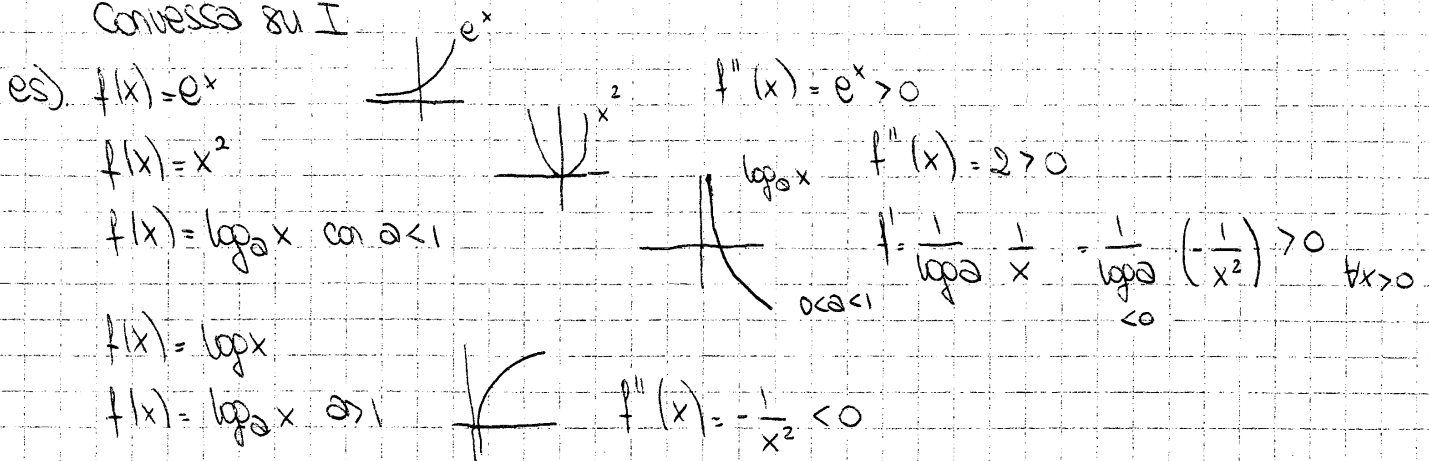 Convessa su I
es). f(x)=e^x e^x f''(x)=e^x>0
f(x)=x^2 x^2 f''(x)=2>0
f(x)=log_a x con a<1 log_a x 0<a<1 f'=1/loga 1/x = 1/loga (-1/x^2)>0 ∀x>0
<0
f(x)=logx
f(x)=log_a x a>1 f''(x)=-1/x^2<0